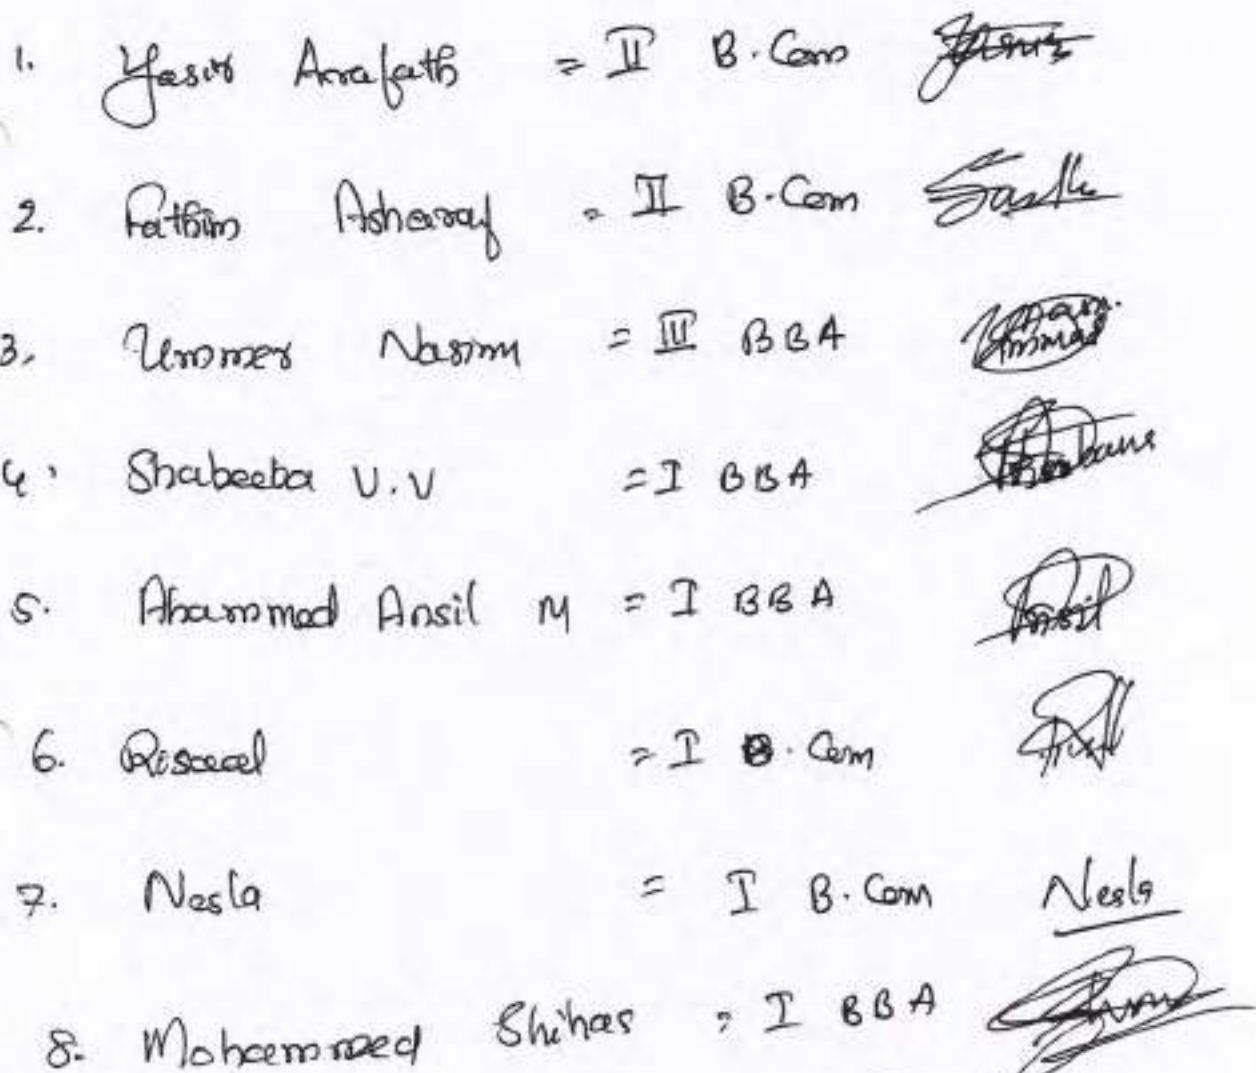 1. Yasir Arafath = II B.Com
2. Fathim Asharaf = II B.Com
3. Ummer Nasim = III BBA
4. Shabeeba V.V = I BBA
5. Ahammed Ansil M = I BBA Ansil
6. = I B.Com
7. Nesla = I B.Com Nesla
8. Mohammed Shihas = I BBA